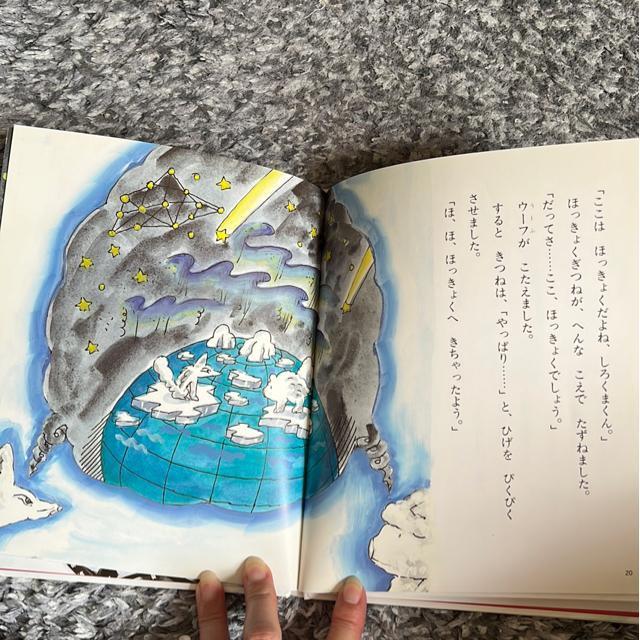 「ここは　ほっきょくだよね、しろくまくん。」
ほっきょくぎつねが、へんな　こえで　たずねました。
「だってさ……ここ、ほっきょくでしょう。」
ウーフが　こたえました。
すると　きつねは、「やっぱり……」と、ひげを　ぴくぴく
させました。
「ほ、ほ、ほっきょくへ　きちゃったよう。」
20